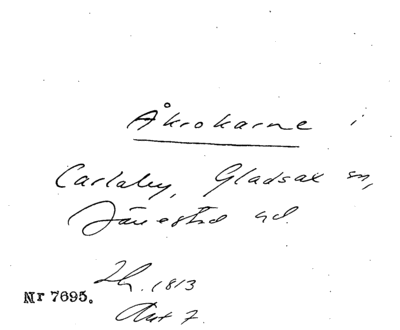 Åkrokarne i
Carlaby, Gladsax sn,
Järrestad hd.
Lh. 1813
Nr 7695.
Akt 7.